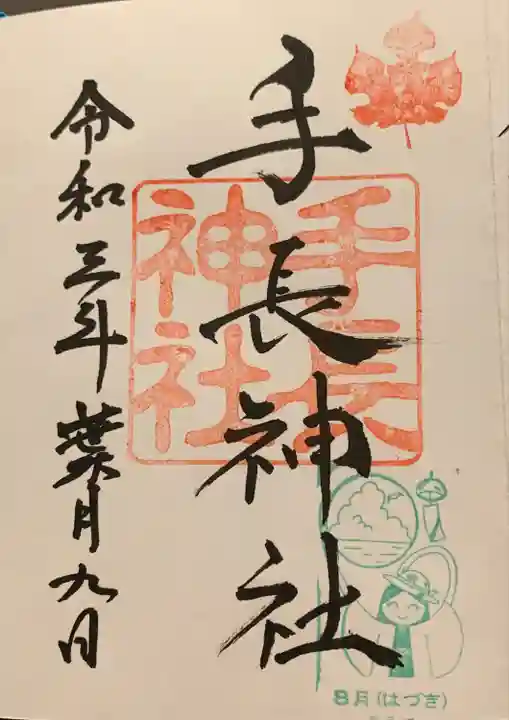 手長神社
手長
神社
令和三年葉月九日
8月(はづき)